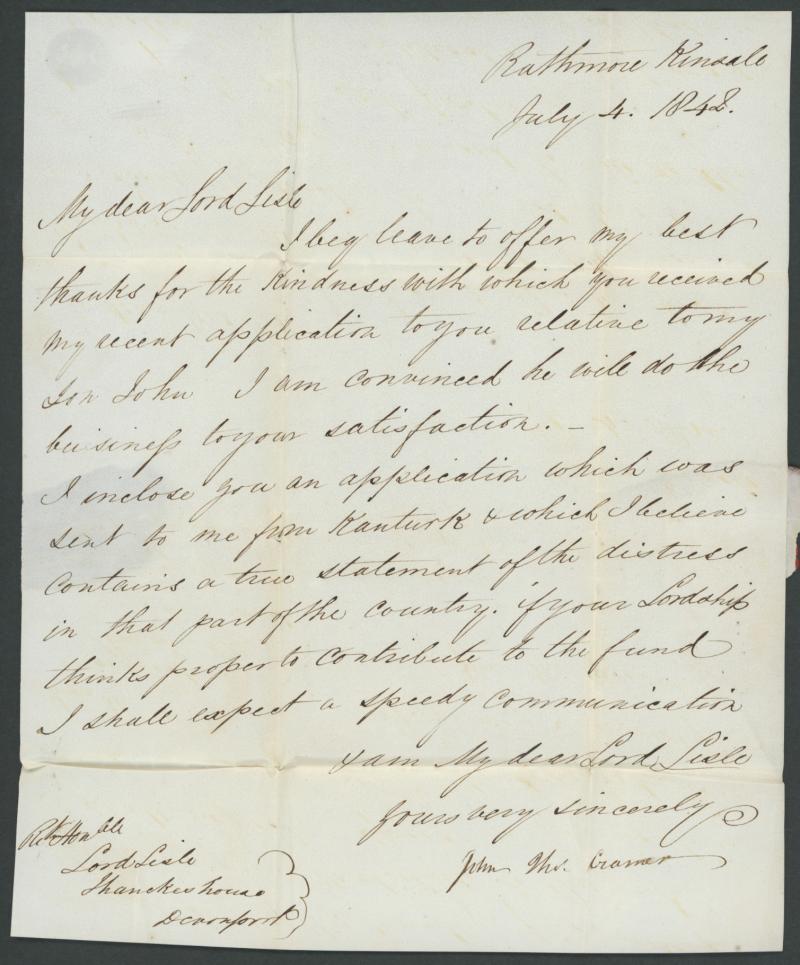 Rathmore Kinsale
July 4. 1842.
My dear Lord Lisle
I beg leave to offer my best
thanks for the Kindness with which you received
my recent application to you relative to my
Son John I am convinced he will do the
business to your satisfaction. –
I inclose you an application which was
sent to me from Kanturk & which I believe
contains a true statement of the distress
in that part of the country. if your Lordship
thinks proper to contribute to the fund
I shall expect a speedy communication
& am My dear Lord Lisle
Yours very sincerely
John Ths. Cramer
Rt Honble
Lord Lisle
Thanckes house
Devonport